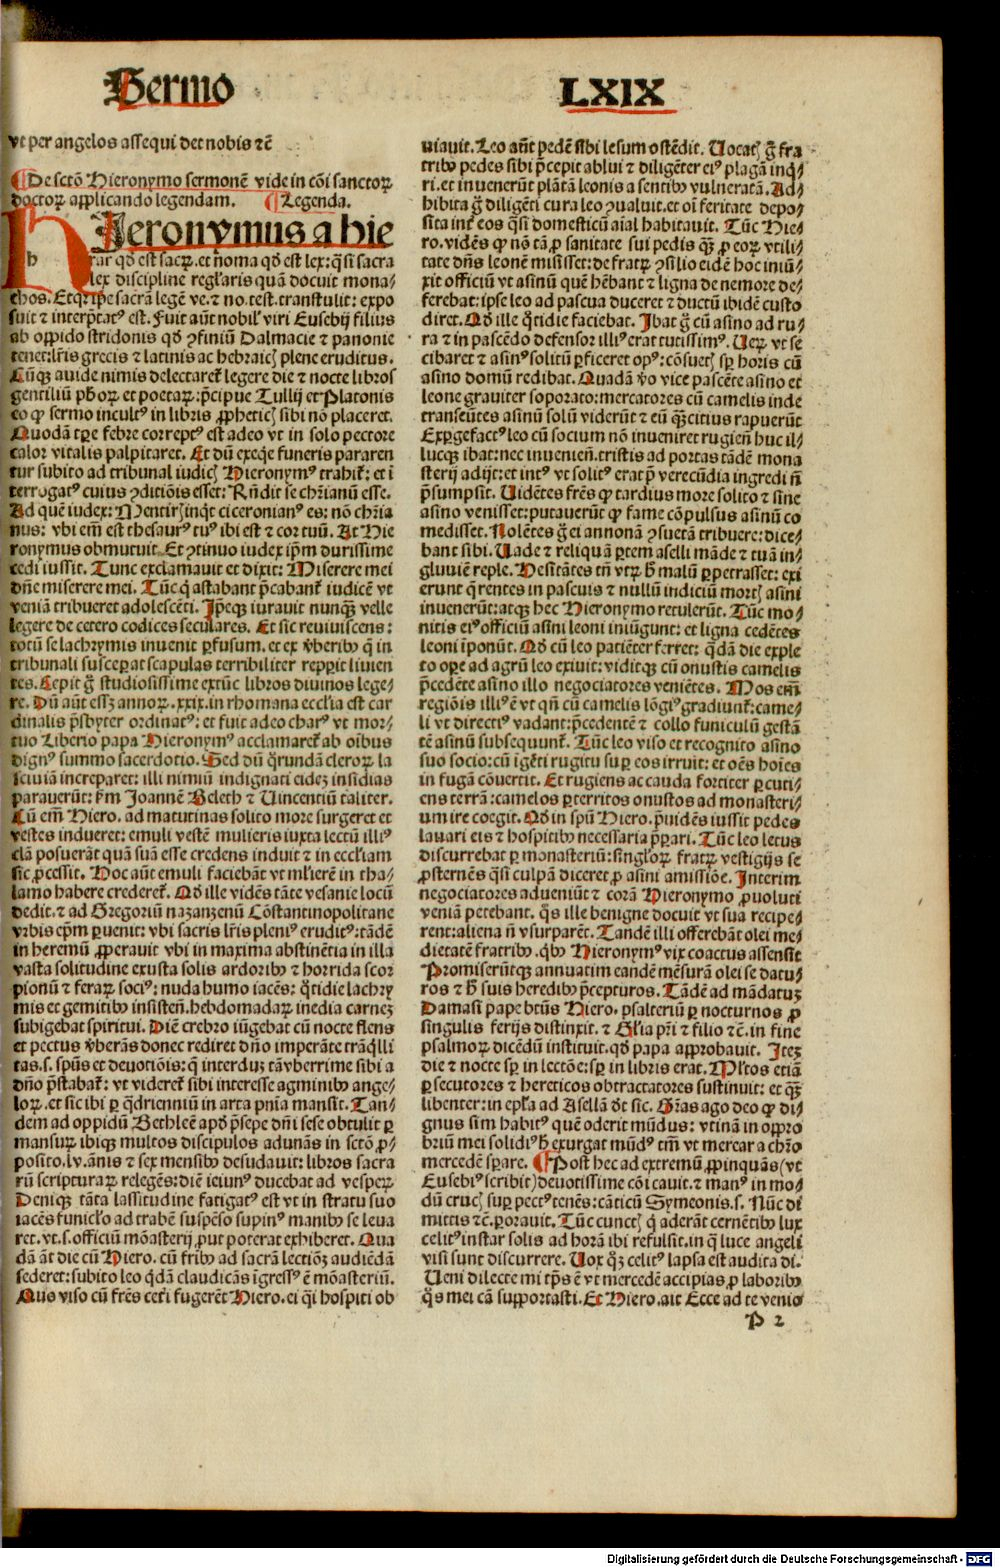 Sermo
LXIX
vt per angelos assequi det nobis ⁊cē
¶ De sctō Hieronymo sermonē vide in cōi sanctoꝝ
doctoꝝ applicando legendam. ¶ Legenda.
Hieronymus a hie
h
rar qd̓ est sacꝝ. et noma qd̓ est lex: q̄si sacra
lex discipline regl̓aris quā docuit mona⸗
chos. Et qꝛ ip̄e sacrā legē ve. ⁊ no. test. transtulit: expo
suit ⁊ interp̄tatꝰ est. Fuit aūt nobil̓ viri Eusebij filius
ab oppido stridonis qd̓ ꝯfiniū Dalmacie ⁊ panonie
tenet: lr̄is grecis ⁊ latinis ac hebraicꝭ plene eruditus.
Cūqꝫ auide nimis delectaret̉ legere die ⁊ nocte libros
gentiliū ph̄oꝝ et poetaꝝ: p̄cipue Tullij et Platonis
eo ꝙ sermo incultꝰ in libris ꝓpheticꝭ sibi nō placeret.
Quodā tꝑe febre correptꝰ est adeo vt in solo pectore
calor vitalis palpitaret. Et dū exeq̄e funeris pararen
tur subito ad tribunal iudicꝭ Hieronymꝰ trahit̉: et ī
terrogatꝰ cuius ꝯditiōis esset: Rn̄dit se chr̄ianū esse.
Ad quē iudex: Mentirꝭ inq̇t ciceronianꝰ es: nō chr̄ia
nus: vbi em̄ est thesaurꝰ tuꝰ ibi est ⁊ cor tuū. At Hie
ronymus obmutuit. Et ꝯtinuo iudex ip̄m durissime
cedi iussit. Tunc exclamauit et dixit: Miserere mei
dn̄e miserere mei. Tūc q̇ astabant p̄cabant̉ iudicē vt
veniā tribueret adolescēti. Ip̄eqꝫ iurauit nunqꝫ velle
legere de cetero codices seculares. Et sic reuiuiscens:
totū se lachrymis inuenit ꝑfusum. et ex v̓beribꝰ q̄ in
tribunali susceꝑat scapulas terribiliter repꝑit liuen
tes. Cepit g̊ studiosissime extūc libros diuinos lege⸗
re. Dū aūt essꝫ annoꝝ .xxix. in rhomana eccl̓ia est car
dinalis p̄sbyter ordinatꝰ: et fuit adeo charꝰ vt mor⸗
tuo Liberio papa Hieronymꝰ acclamaret̉ ab oībus
dignꝰ summo sacerdotio. Sed dū q̄rundā cleroꝝ la
sciuiā increparet: illi nimiū indignati eidez insidias
parauerūt: ẜm Joannē Beleth ⁊ Vincentiū taliter.
Cū em̄ Hiero. ad matutinas solito more surgeret et
vestes indueret: emuli vestē mulieris iuxta lectū illiꝰ
clā posuerāt quā suā esse credens induit ⁊ in eccl̓iam
sic ꝓcessit. Hoc aūt emuli faciebāt vt ml̓ierē in tha⸗
lamo habere crederet̉. Qd̓ ille vidēs tāte vesanie locū
dedit. ⁊ ad Gregoriū nazanzenū Cōstantinopolitane
vrbis ep̄m ꝑuenit: vbi sacris lr̄is pleniꝰ eruditꝰ: tādē
in heremū ꝓperauit vbi in maxima abstinētia in illa
vasta solitudine exusta solis ardoribꝰ ⁊ horrida scor
pionū ⁊ feraꝝ sociꝰ: nuda humo iacēs: q̇tidie lachry
mis et gemitibꝰ insistēn. hebdomadaꝝ inedia carneꝫ
subigebat spiritui. Diē crebro iūgebat cū nocte flens
et pectus v̓berās donec rediret dn̄o imperāte trāq̇lli
tas. s. spūs et deuotiōis: q̄ interduꝫ tā v̓berrime sibi a
dn̄o p̄stabat̉: vt videret̉ sibi interesse agminibꝰ ange⸗
loꝝ. et sic ibi ꝑ q̄drienniū in arta pn̄ia mansit. Tan⸗
dem ad oppidū Bethleē apd̓ p̄sepe dn̄i sese obtulit ꝑ
mansuꝝ ibiqꝫ multos discipulos adunās in sctō ꝓ⸗
posito. lv. ānis ⁊ sex mensibꝰ desudauit: libros sacra
rū scripturaꝝ relegēs: diē ieiunꝰ ducebat ad vesperꝫ
Deniqꝫ tāta lassitudine fatigatꝰ est vt in stratu suo
iacēs funicl̓o ad trabē suspēso supinꝰ manibꝰ se leua
ret. vt. s. officiū mōasterij ꝓut poterat exhiberet. Qua
dā āt die cū Hiero. cū frībꝰ ad sacrā lectiōꝫ audiēdā
sederet: subito leo q̇dā claudicās īgressꝰ ē mōasteriū.
Quo viso cū frēs cet̓i fugerēt Hiero. ei q̄si hospiti ob
uiauit. Leo aūt pedē sibi lesum ostēdit. Uocatꝭ g̊ fra
tribꝰ pedes sibi p̄cepit ablui ⁊ diligēter eiꝰ plagā inq̇⸗
ri. et inuenerūt plātā leonis a sentibꝰ vulneratā. Ad⸗
hibita g̊ diligēti cura leo ꝯualuit. et oī feritate depo⸗
sita int̓ eos q̄si domesticū aīal habitauit. Tūc Hie⸗
ro. vidēs ꝙ nō tā ꝓ sanitate sui pedis qꝫ ꝓ eoꝝ vtili⸗
tate dn̄s leonē misisset: de fratꝝ ꝯsilio eidē hoc iniū⸗
xit officiū vt asinū quē hēbant ⁊ ligna de nemore de⸗
ferebat: ipse leo ad pascua duceret ⁊ ductū ibidē custo
diret. Qd̓ ille q̇tidie faciebat. Ibat g̊ cū asino ad ru⸗
ra ⁊ in pascēdo defensor illiꝰ erat tutissimꝰ. Ueꝝ vt se
cibaret ⁊ asinꝰ solitū ꝑficeret opꝰ: cōsuetꝭ sꝑ horis cū
asino domū redibat. Quadā v̊o vice pascēte asino et
leone grauiter soporato: mercatores cū camelis inde
transeūtes asinū solū viderūt ⁊ eū qꝫcitius rapuerūt
Exꝑgefactꝰ leo cū socium nō inueniret rugien̄ huc il⸗
lucqꝫ ibat: nec inuenien̄. tristis ad portas tādē mona
sterij adijt: et intꝰ vt solitꝰ erat p̄ verecūdia ingredi n̄
p̄sumpsit. Uidētes frēs ꝙ tardius more solito ⁊ sine
asino venisset: putauerūt ꝙ fame cōpulsus asinū co
medisset. Nolētes g̊ ei annonā ꝯsuetā tribuere: dice⸗
bant sibi. Uade ⁊ reliquā ꝑtem aselli māde ⁊ tuā in⸗
gluuiē reple. Hesitātes tn̄ vtꝝ h̓ malū ꝑpetrasset: exi
erunt q̄rentes in pascuis ⁊ nullū indiciū mortꝭ asini
inuenerūt: atqꝫ hec Hieronymo retulerūt. Tūc mo⸗
nitis eiꝰ officiū asini leoni iniūgunt: et ligna cedētes
leoni īponūt. Qd̓ cū leo patiēter ferret: q̇dā die exple
to oꝑe ad agrū leo exiuit: viditqꝫ cū onustis camelis
p̄cedēte asino illo negociatores veniētes. Mos em̄
regiōis illiꝰ ē vt qn̄ cū camelis lōgiꝰ gradiunt̉: came⸗
li vt directiꝰ vadant: p̄cedentē ⁊ collo funiculū gestā
tē asinū subsequunt̉. Tūc leo viso et recognito asino
suo socio: cū īgēti rugitu suꝑ eos irruit: et oēs hoīes
in fugā cōuertit. Et rugiens ac cauda fortiter ꝑcuti⸗
ens terrā: camelos ꝑterritos onustos ad monasteri⸗
um ire coegit. Qd̓ in spū Hiero. p̄uidēs iussit pedes
lauari eis ⁊ hospitibꝰ necessaria p̄parari. Tūc leo letus
discurrebat ꝑ monasteriū: singl̓oꝝ fratꝝ vestigijs se
ꝓsternēs q̄si culpā diceret ꝓ asini amissiōe. Interim
negociatores adueniūt ⁊ corā Hieronymo ꝓuoluti
veniā petebant. q̄s ille benigne docuit vt sua recipe⸗
rent: aliena n̄ vsurparēt. Tandē illi offerebāt olei me⸗
dietatē fratribꝰ. q̇bꝰ Hieronymꝰ vix coactus assensit
Promiserūtqꝫ annuatim eandē mēsurā olei se datu⸗
ros ⁊ h̓ suis heredibꝰ p̄cepturos. Tādē ad mādatuꝫ
Damasi pape btūs Hiero. psalteriū ꝑ nocturnos ꝓ
singulis ferijs distinxit. ⁊ Gl̓ia pr̄i ⁊ filio ⁊cē. in fine
psalmoꝝ dicēdū instituit. qd̓ papa approbauit. Iteꝫ
die ⁊ nocte sꝑ in lectōe: sꝑ in libris erat. Ml̓tos etiā
ꝑsecutores ⁊ hereticos obtractatores sustinuit: et qꝫ
libenter: in epl̓a ad Asellā dt̄ sic. Gr̄as ago deo ꝙ di⸗
gnus sim habitꝰ quē oderit mūdus: vtinā in oppro
briū mei solidiꝰ h̓ exurgat mūdꝰ tm̄ vt merear a chr̄o
mercedē sꝑare. ¶ Post hec ad extremū ꝓpinquās (vt
Eusebiꝰ scribit) deuotissime cōicauit. ⁊ manꝰ in mo⸗
dū crucꝭ suꝑ pectꝰ tenēs: cāticū Symeonis. s. Nūc di
mittis ⁊cē. ꝑorauit. Tūc cunctꝭ q̇ aderāt cernētibꝰ lux
celitꝰ instar solis ad horā ibi refulsit. in q̄ luce angeli
visi sunt discurrere. Uox qꝫ celitꝰ lapsa est audita di.
Ueni dilecte mi tp̄s ē vt mercedē accipias ꝓ laboribꝰ
q̄s mei cā supportasti. Et Hiero. ait Ecce ad te venio
P 2
Digitalisierung gefördert durch die Deutsche Forschungsgemeinschaft - DFG